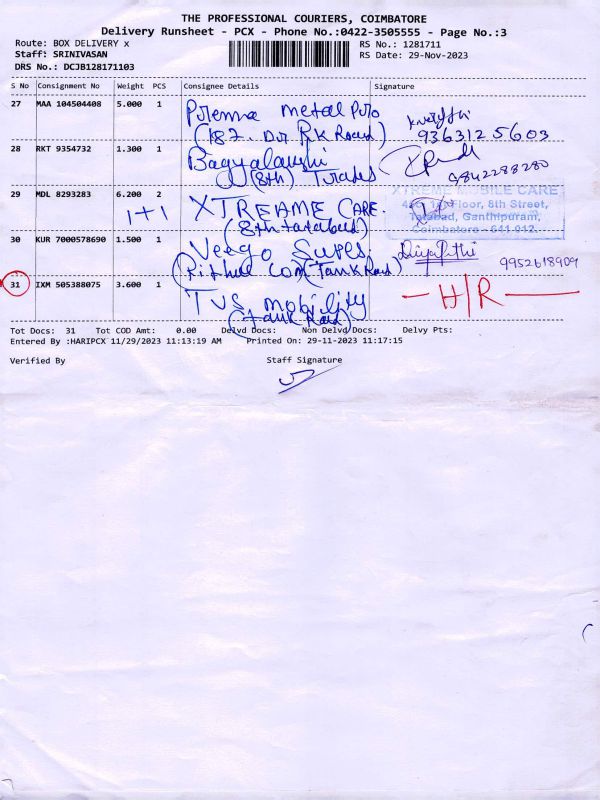 THE PROFESSIONAL COURIERS, COIMBATORE
Delivery Runsheet - PCX - Phone No.:0422-3505555 - Page No.:3
Route: BOX DELIVERY x
RS No.: 1281711
Staff: SRINIVASAN
RS Date: 29-Nov-2023
DRS No.: DCJB128171103
S No Consignment No Weight PCS Consignee Details Signature
27 MAA 104504408 5.000 1
Metal
9363125603
28 RKT 9354732 1.300 1
(8th)
9842288280
29 MDL 8293283 6.200 2
1+1
XTREAME CARE.
XTREME MOBILE CARE
Floor, 8th Street,
Tatabad, Ganthipuram,
Coimbatore - 641 012.
30 KUR 7000578690 1.500 1
(Tank Road)
9952618909
31 IXM 505388075 3.600 1
TVS mobility
(Tank Road)
H/R
Tot Docs: 31 Tot COD Amt: 0.00 Delvd Docs: Non Delvd Docs: Delvy Pts:
Entered By :HARIPCX 11/29/2023 11:13:19 AM Printed On: 29-11-2023 11:17:15
Verified By Staff Signature